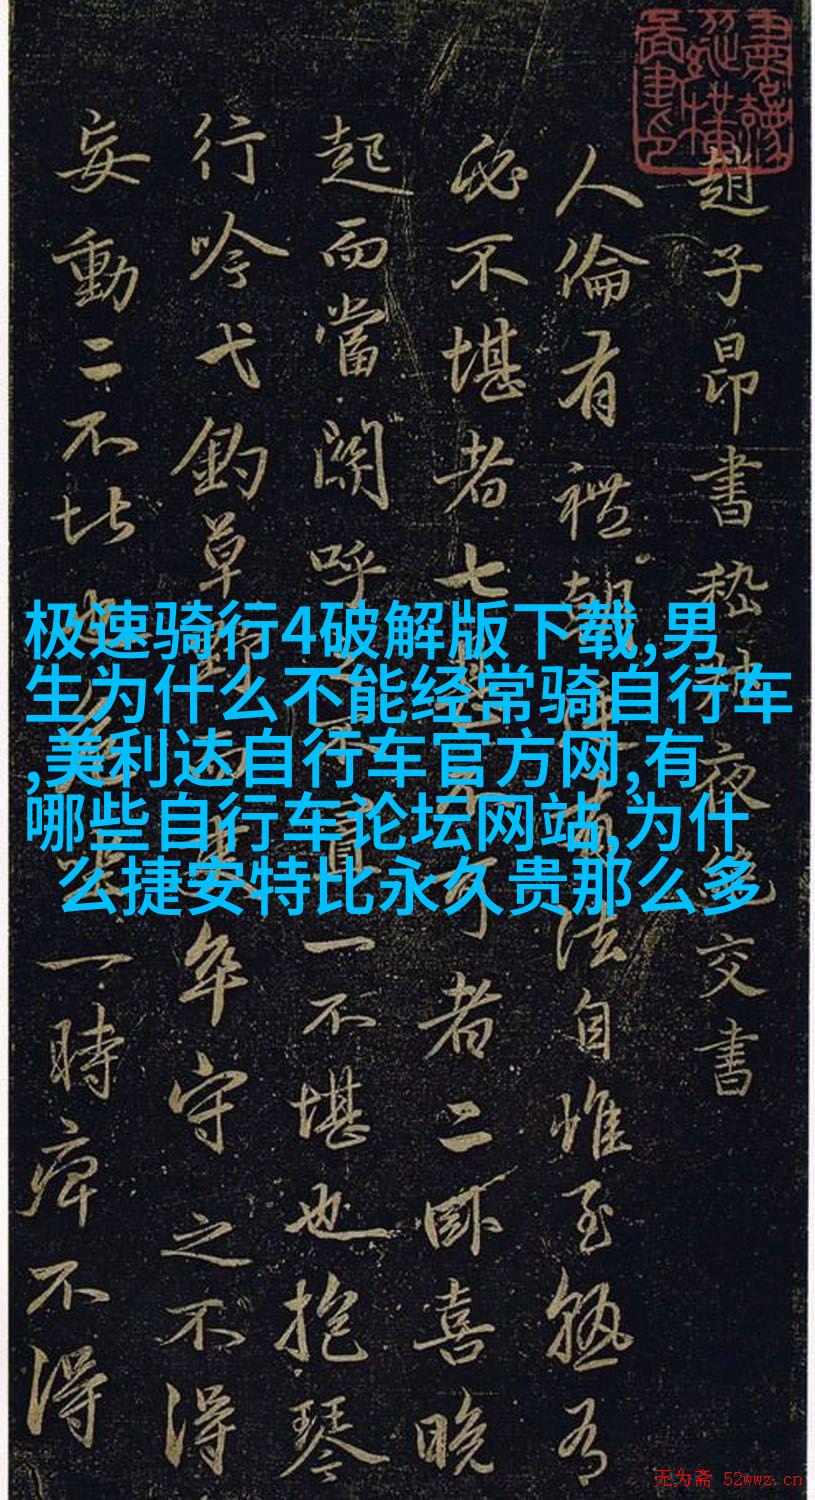 趙子昂書嵇叔夜絕交書
人倫有禮朝廷有法自惟至熟有
必不堪者七甚不可者二卧喜晚
起而當關呼之不置一不堪也抱琴
行吟弋釣草野而吏卒守之不得
妄動二不堪也危坐一時痺不得
极速骑行4破解版下载,男
生为什么不能经常骑自行车
,美利达自行车官方网,有
哪些自行车论坛网站,为什
么捷安特比永久贵那么多
无为斋 52wwz.cn